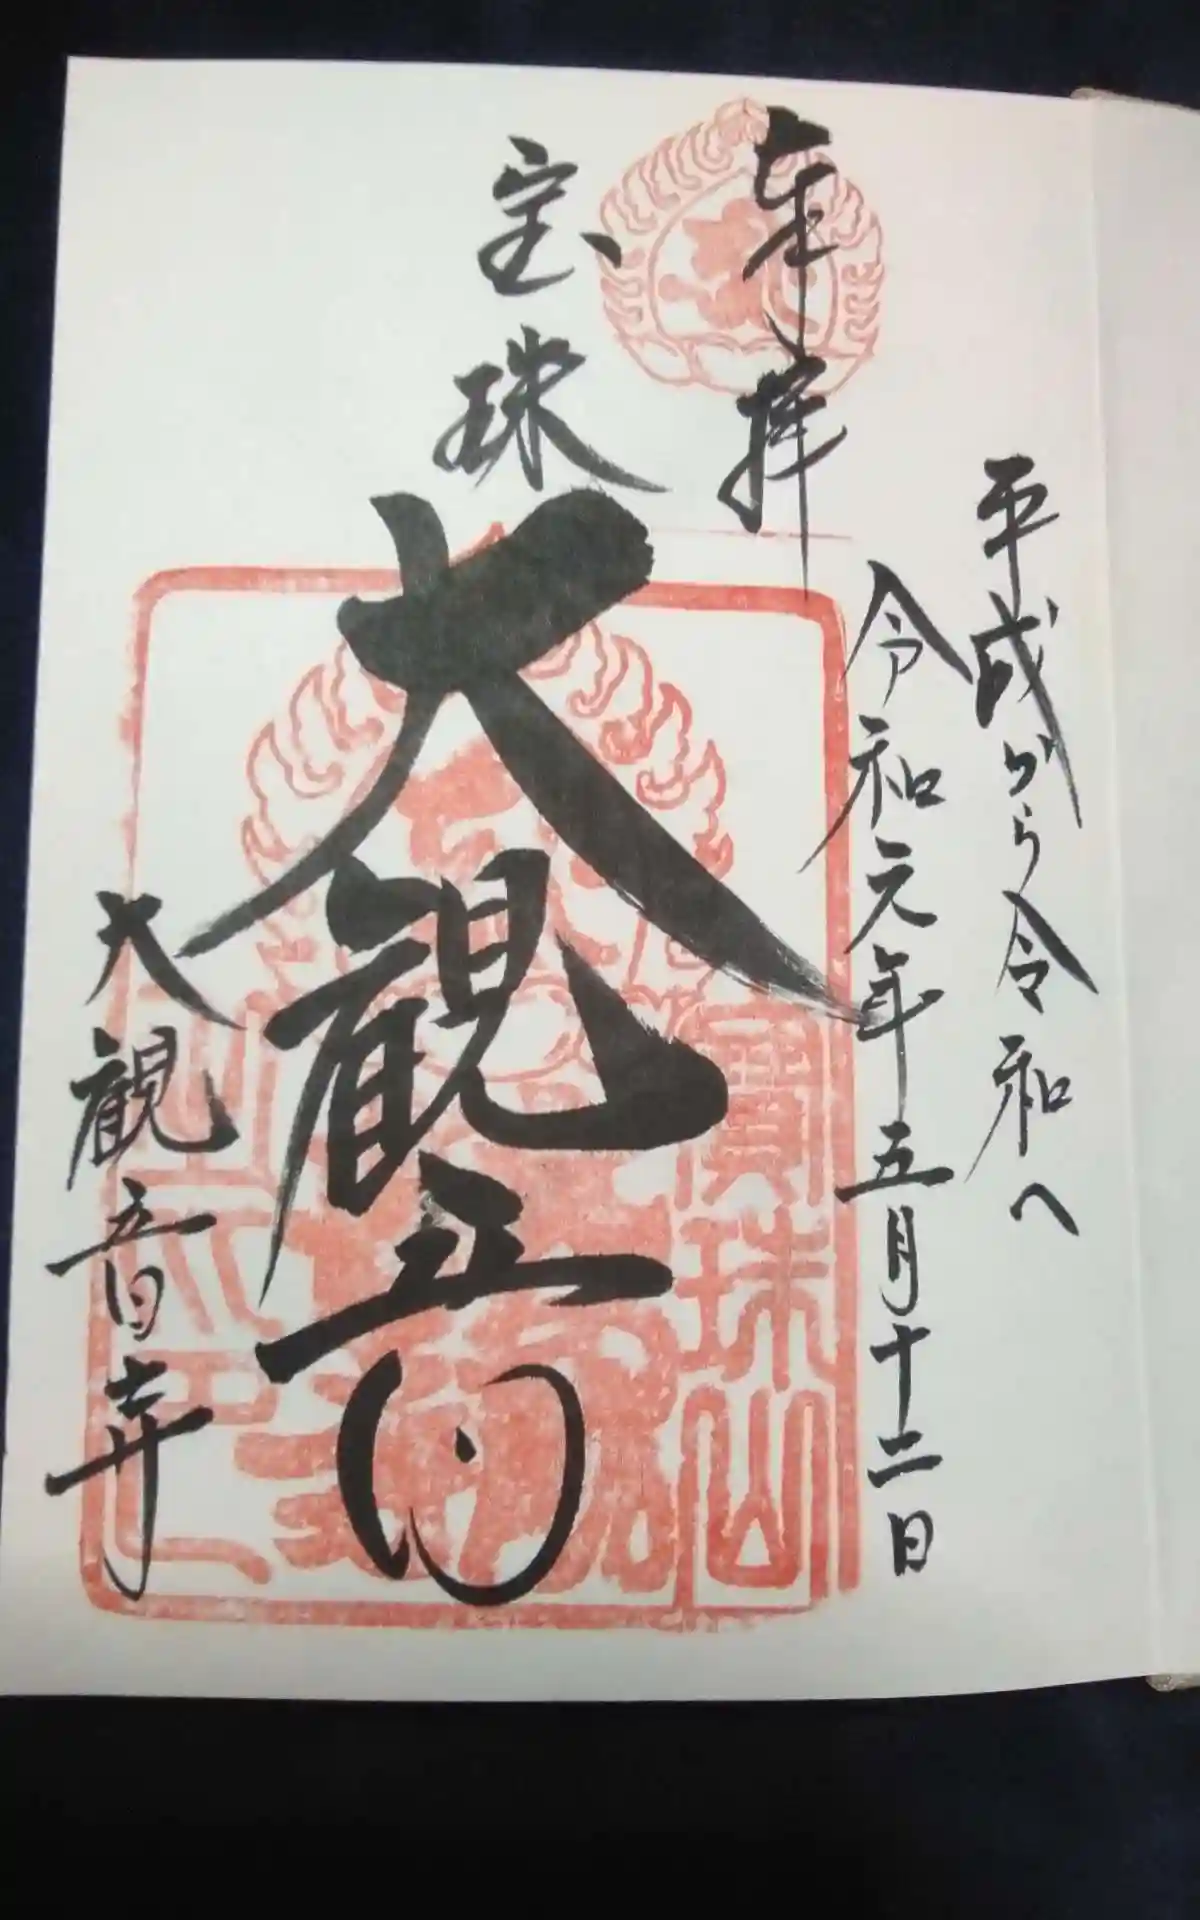 平成から令和へ
令和元年五月十二日
奉拝
宝珠
大観音
大観音寺
寶珠山